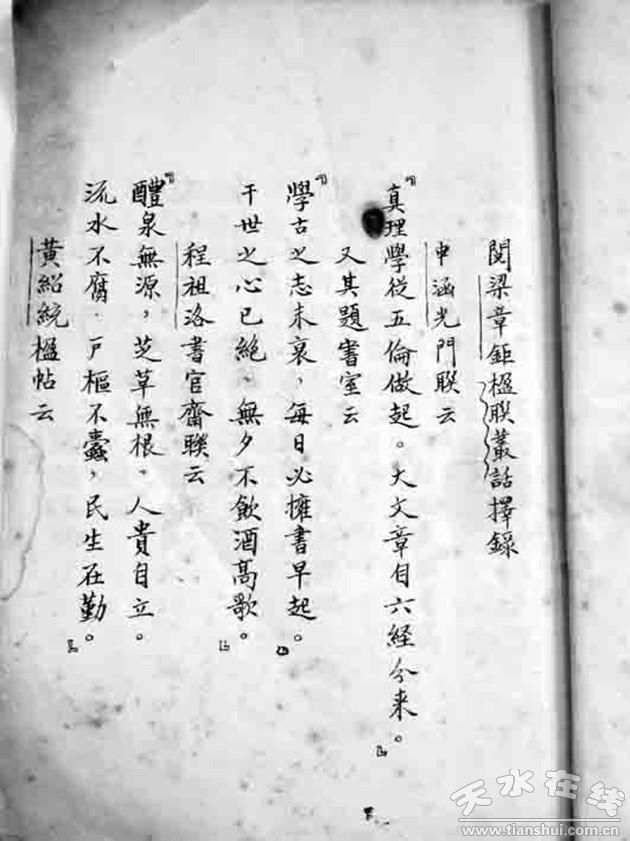 閱梁章鉅楹聯叢話擇錄
申涵光門聯云
『真理學從五倫做起。大文章自六經分来。』
又其題書室云
『學古之志未衰，每日必擁書早起。
干世之心已絕，無夕不飲酒高歌。』
程祖洛書官齋聯云
『醴泉無源，芝草無根，人貴自立。
流水不腐，戶樞不蠹，民生在勤。』
黃紹統楹帖云
天水在线
www.tianshui.com.cn